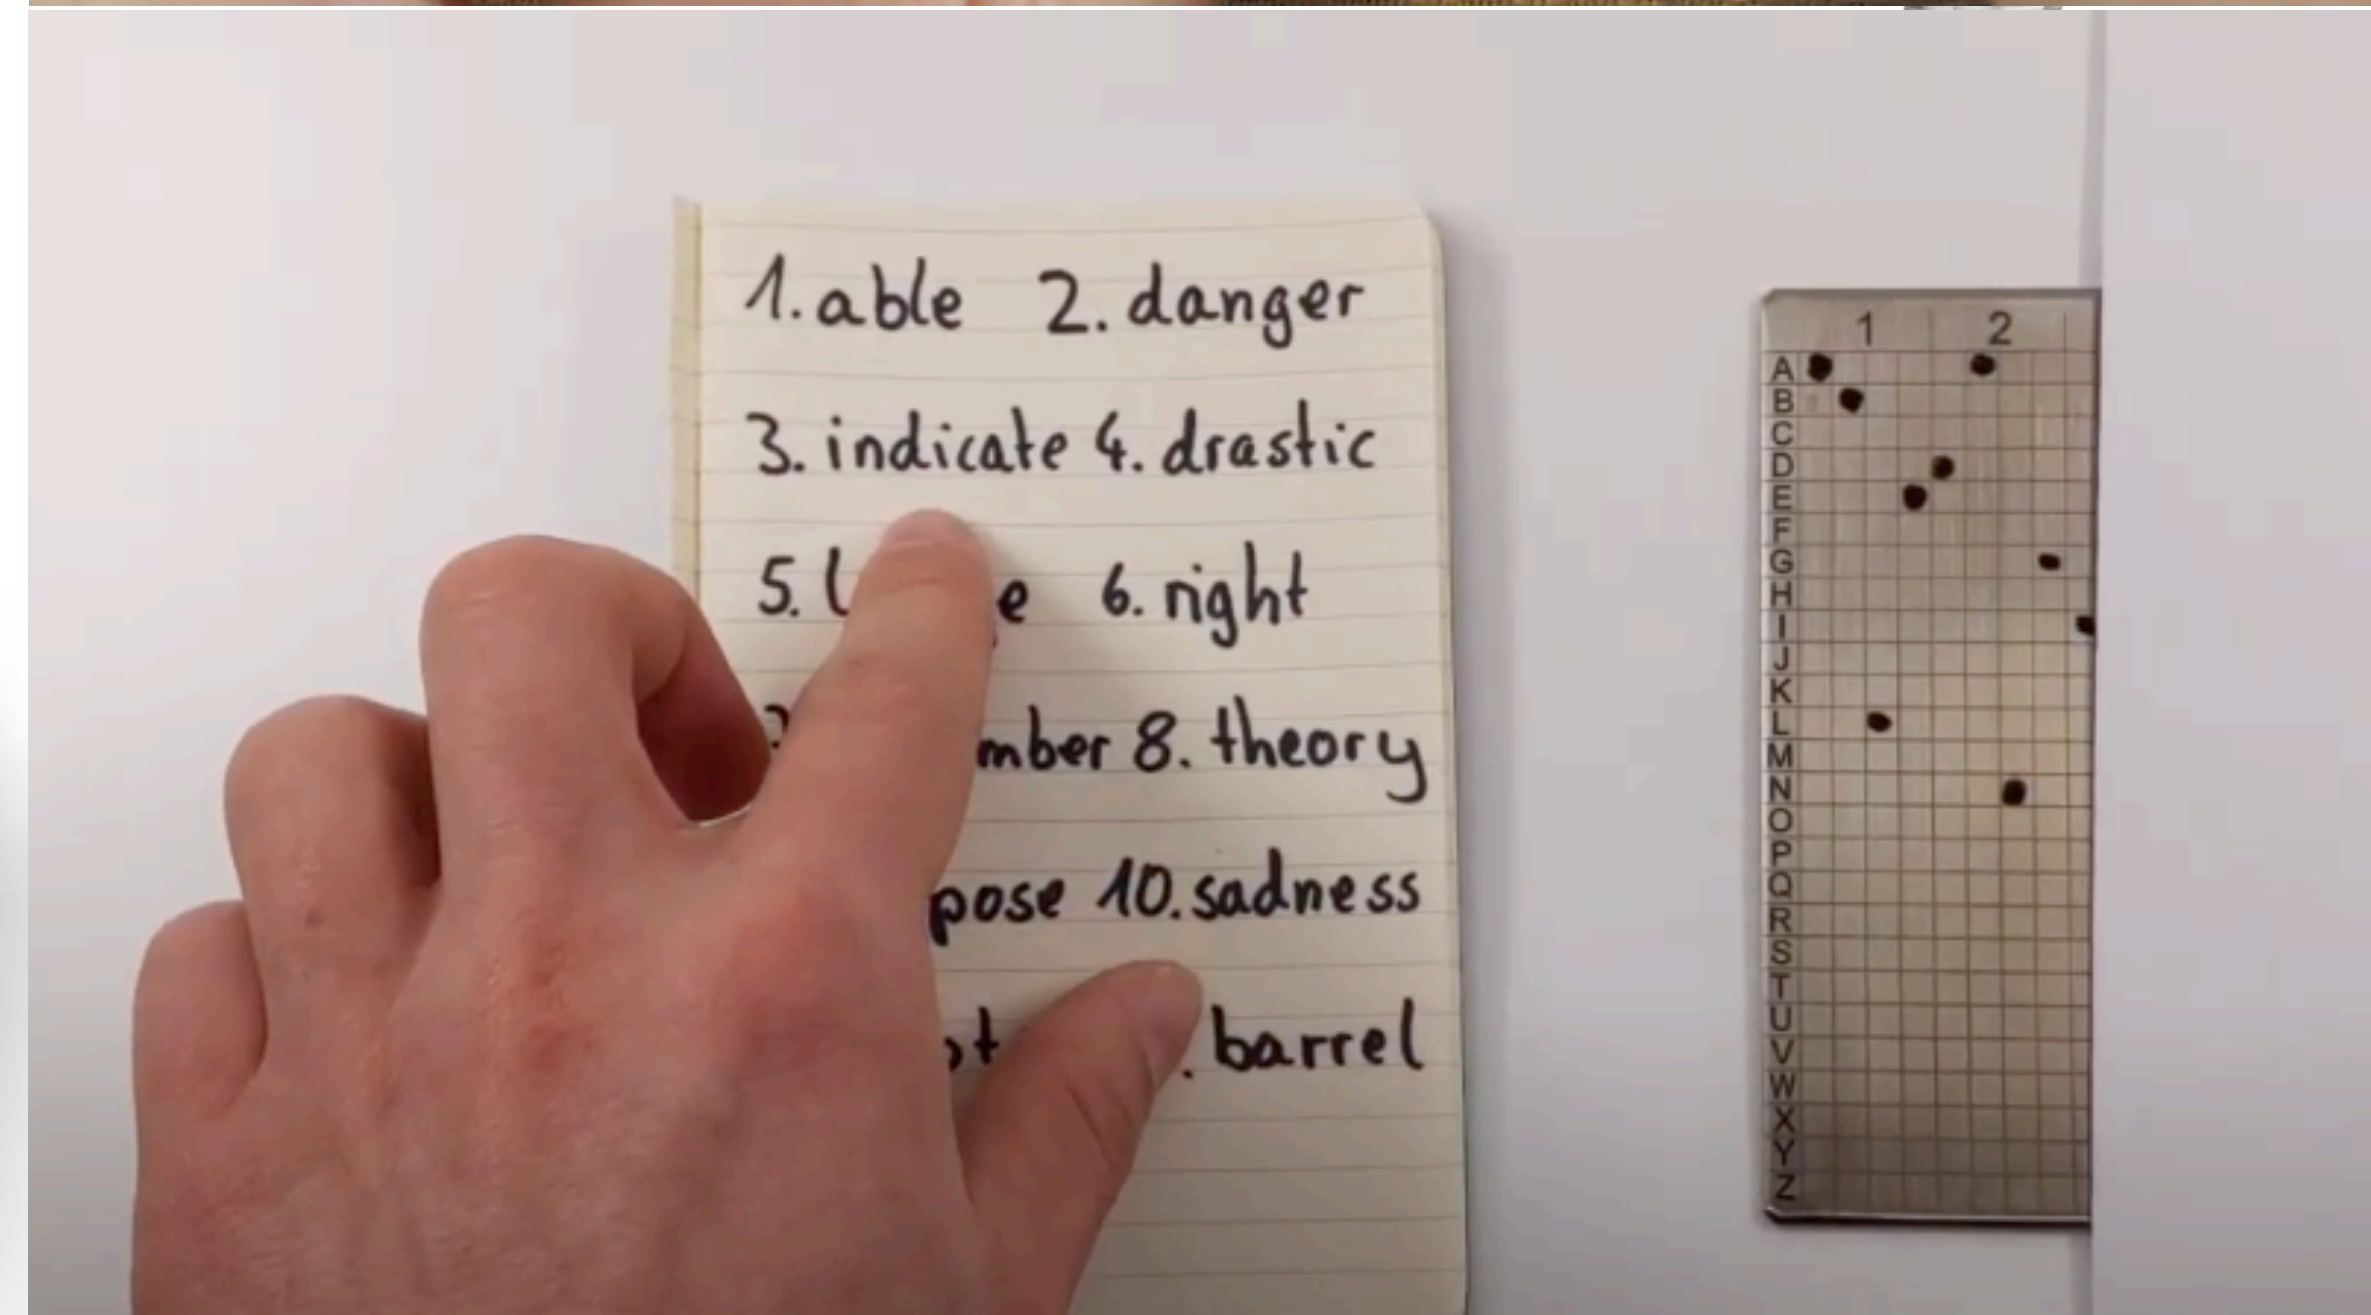 1. able 2. danger
3. indicate 4. drastic
5. 6. right
8. theory
10. sadness
barrel
1 2
A
B
C
D
E
F
G
H
I
J
K
L
M
N
O
P
Q
R
S
T
U
V
W
X
Y
Z